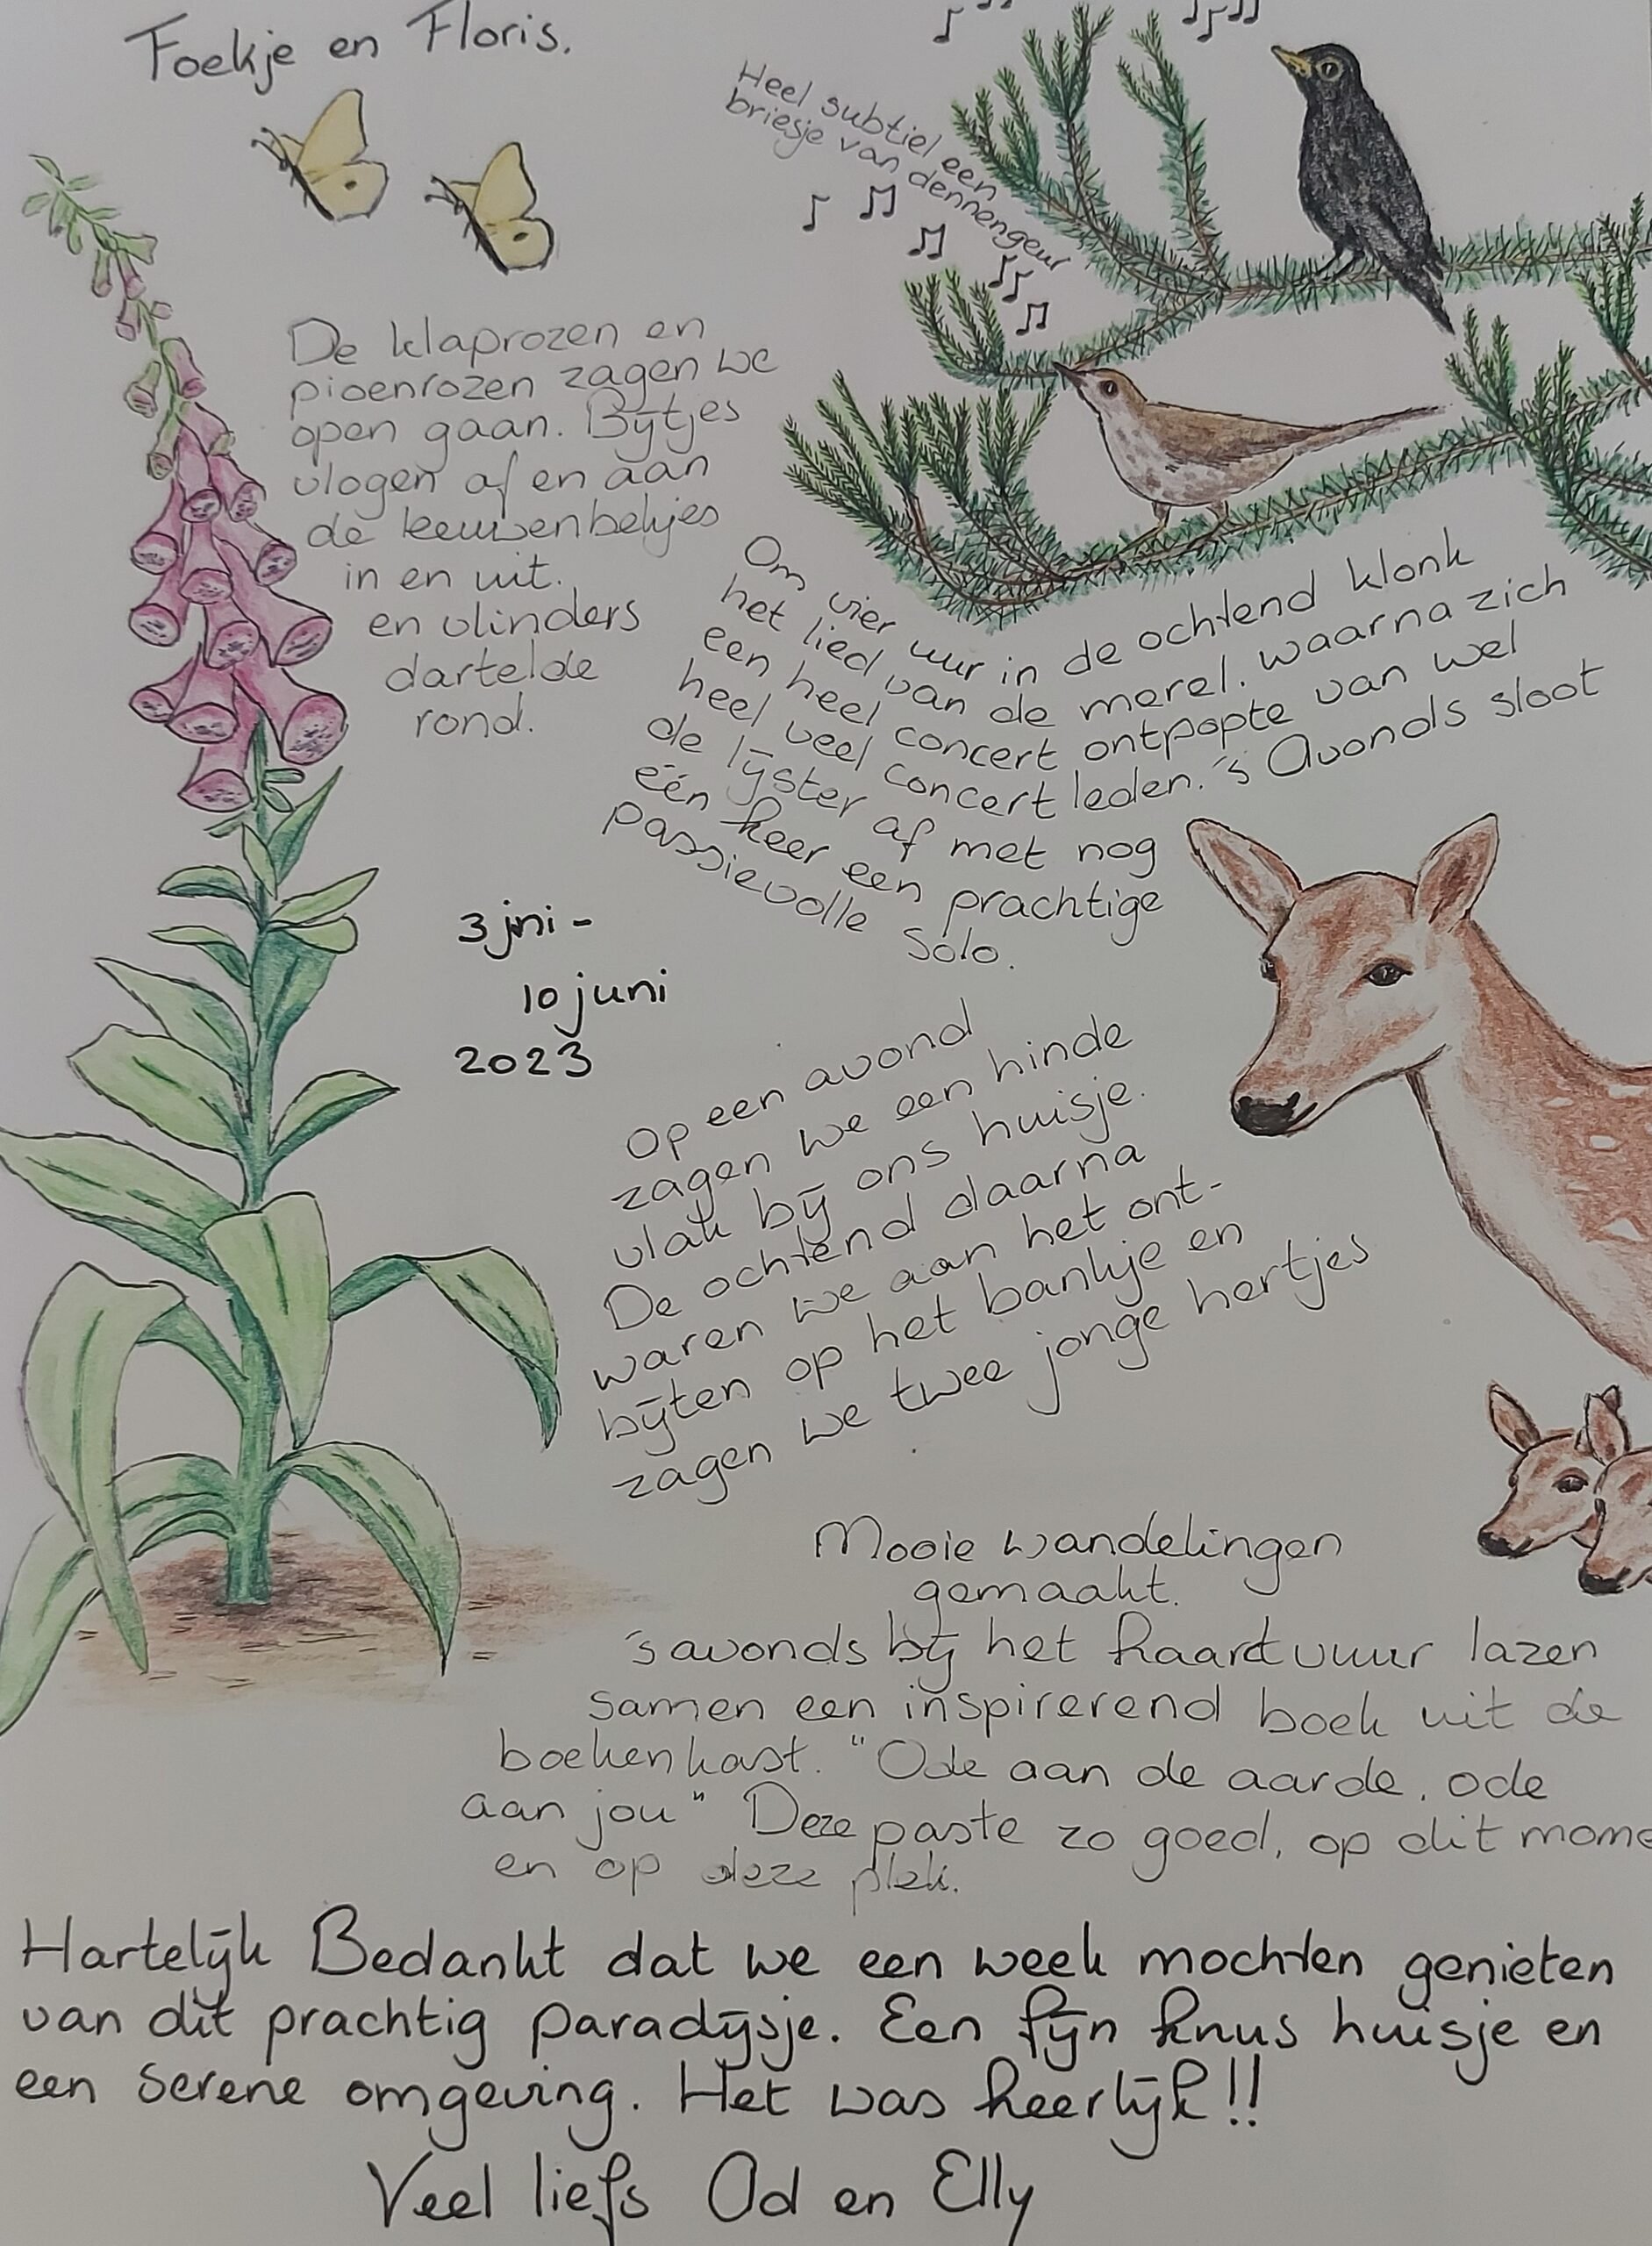 Foekje en Floris.
Heel subtiel een
briesje van dennengeur
De klaprozen en
pioenrozen zagen we
open gaan. Bijtjes
vlogen af en aan
de leeuwenbekjes
in en uit.
en vlinders
dartelde
rond.
Om vier uur in de ochtend klonk
het lied van de merel. waarna zich
een heel concert ontpopte van wel
heel veel concert leden. 's Avonds sloot
de lijster af met nog
één keer een prachtige
passievolle solo.
3 jni -
10 juni
2023
Op een avond
zagen we een hinde
vlak bij ons huisje.
De ochtend daarna
waren we aan het ont-
bijten op het bankje en
zagen we twee jonge hertjes
Mooie wandelingen
gemaakt.
's avonds bij het haardvuur lazen
samen een inspirerend boek uit de
boekenkast. "Ode aan de aarde, ode
aan jou" Deze paste zo goed, op dit mome
en op deze plek.
Hartelijk Bedankt dat we een week mochten genieten
van dit prachtig paradijsje. Een fijn knus huisje en
een serene omgeving. Het was heerlijk!!
Veel liefs Od en Elly